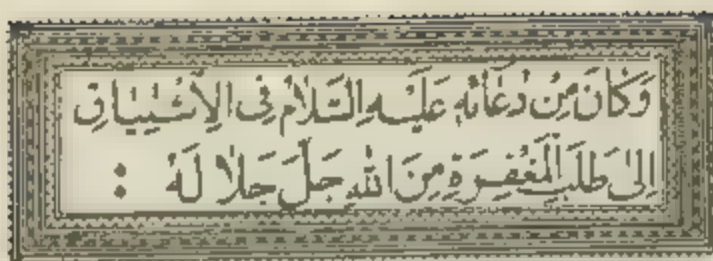 وَكَانَ مِنْ دُعَائِهِ عَلَيْهِ السَّلَامُ فِي الْاِشْتِيَاقِ
اِلىٰ طَلَبِ الْمَغْفِرَةِ مِنَ اللهِ جَلَّ جَلَالَهُ :